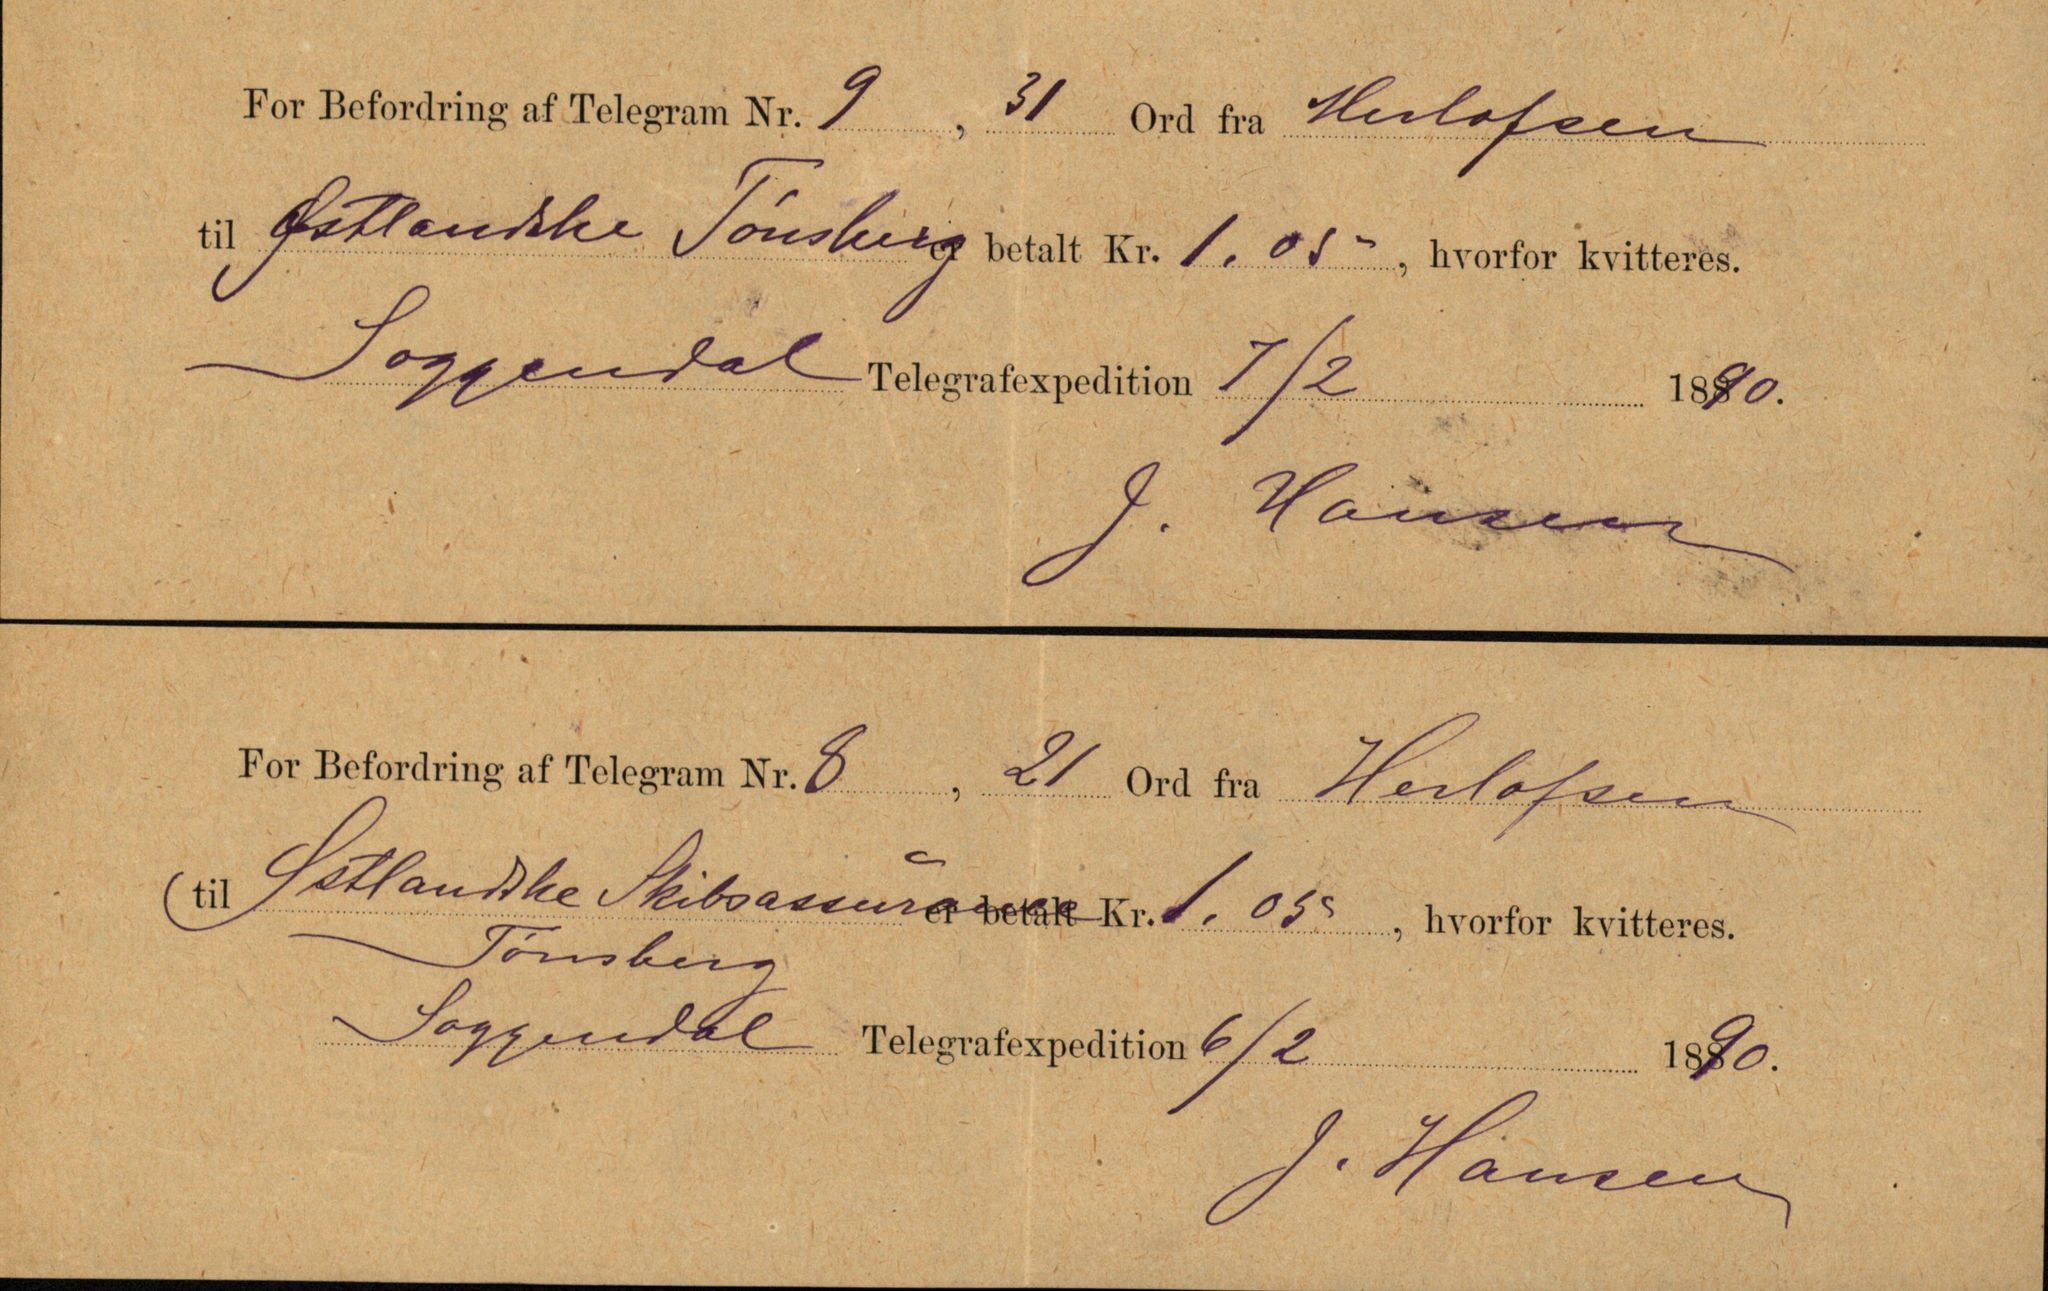 For Befordring af Telegram Nr. 9, 31 Ord fra Herlofsen
til Østlandske Tönsberg er betalt Kr. 1.05, hvorfor kvitteres.
Soggendal Telegrafexpedition 7/2 1890.
J. Hansen
For Befordring af Telegram Nr. 8, 21 Ord fra Herlofsen
(til Østlandske Skibsassurance er betalt Kr. 1.05, hvorfor kvitteres.
Tönsberg
Soggendal Telegrafexpedition 6/2 1890.
J. Hansen